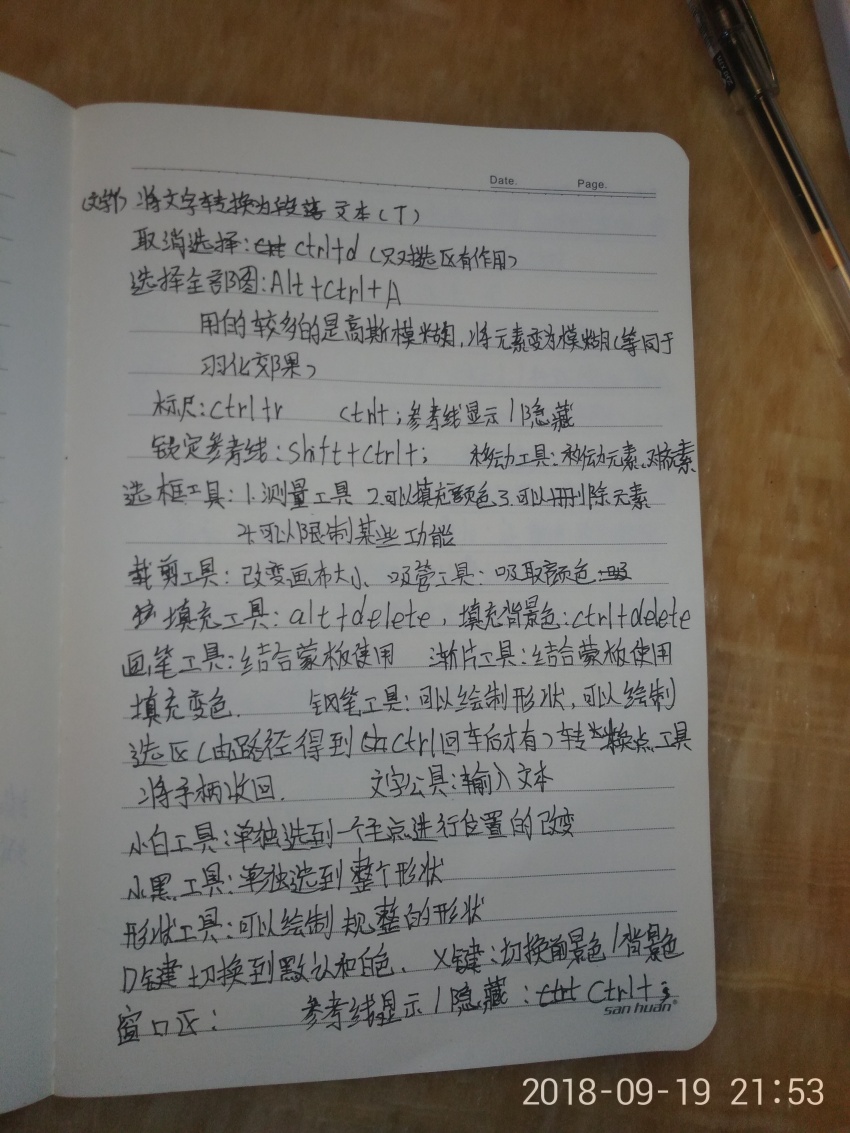 Date. Page.
(文字) 将文字转换为段落文本(T)
取消选择: ctrl+d (只对选区有作用)
选择全部图: Alt+Ctrl+A
用的较多的是高斯模糊,将元素变为模糊(等同于
羽化效果)
标尺: ctrl+r ctrl+; 参考线显示/隐藏
锁定参考线: shift+ctrl+; 移动工具: 移动元素、对齐元素
选框工具: 1.测量工具 2.可以填充颜色 3.可以删除元素
4.可以限制某些功能
裁剪工具: 改变画布大小、吸管工具: 吸取颜色
填充工具: alt+delete, 填充背景色: ctrl+delete
画笔工具: 结合蒙板使用 渐片工具: 结合蒙板使用
填充变色. 钢笔工具: 可以绘制形状, 可以绘制
选区(由路径得到 Ctrl回车后才有) 转换点工具
将手柄收回. 文字公具: 输入文本
小白工具: 单独选到一个毛点进行位置的改变
小黑工具: 单独选到整个形状
形状工具: 可以绘制规整的形状
D键切换到默认和白色. X键: 切换前景色/背景色
窗口区: 参考线显示/隐藏: Ctrl+;
san huan®
2018-09-19 21:53